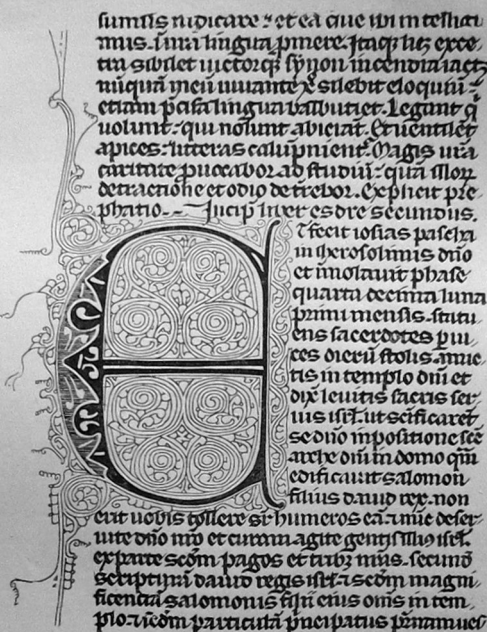 sumsis iudicare : et ea que ibi
mus. ūrā lingua pmere. Itaqꝫ lꝫ exce-
tra sibilet uictorqꝫ synon incendia iactꝫ
nūquā meū iuuante xp̄o silebit eloquiū :
etiam p̄cisa lingua balbutiet. Legant q̄
uolunt : qui nolunt abiciāt. Euentilēt
apices : litteras calūpnient᷑. Magis ūrā
caritate puocabor ad studiū : quā illoꝝ
detractiōe et odio detrebor. Explicit pre-
phatio. Incip̄ liber esdre secundus.
Et fecit iosias pascha
in iherosolimis dn̄o
et īmolauit phase
quarta decima luna
primi mensis. statu-
ens sacerdotes p̱ ui-
ces dierū stolis amic-
tis in templo dn̄i et
dix̄ leuitis sacris ser-
uis isrl̄. ut sc̄ificarēt
se dn̄o in positione sc̄e
arche dn̄i in domo qm̄
edificauit salomon
filius dauid rex. non
erit uobis tollere sr̄ humeros eā. ⁊ nūc deser-
uite dn̄o nr̄o et curam agite gentis illiꝰ isrl̄.
ex parte scd̄m pagos et tribꝫ uras. secunđ
scripturā dauid regis isrl̄ ⁊ scd̄m magni-
ficentiā salomonis filij eius oīns in tem-
plo. ⁊ scd̄m particulā p̄ncipatus